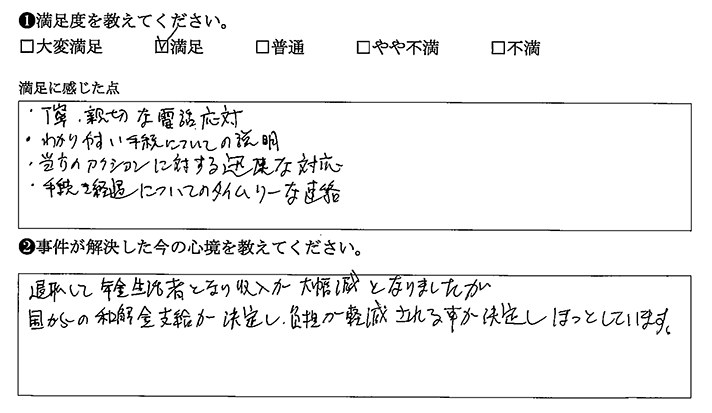 ❶満足度を教えてください。
□大変満足 ☑満足 □普通 □やや不満 □不満
満足に感じた点
・丁寧、親切な電話応対
・わかり付い手続についての説明
・当方のアクションに対する迅速な対応
・手続き経過についてのタイムリーな連絡
❷事件が解決した今の心境を教えてください。
退職して年金生活者となり収入が大幅減となりましたが
国からの和解金支給が決定し、負担が軽減される事が決定しほっとしています。